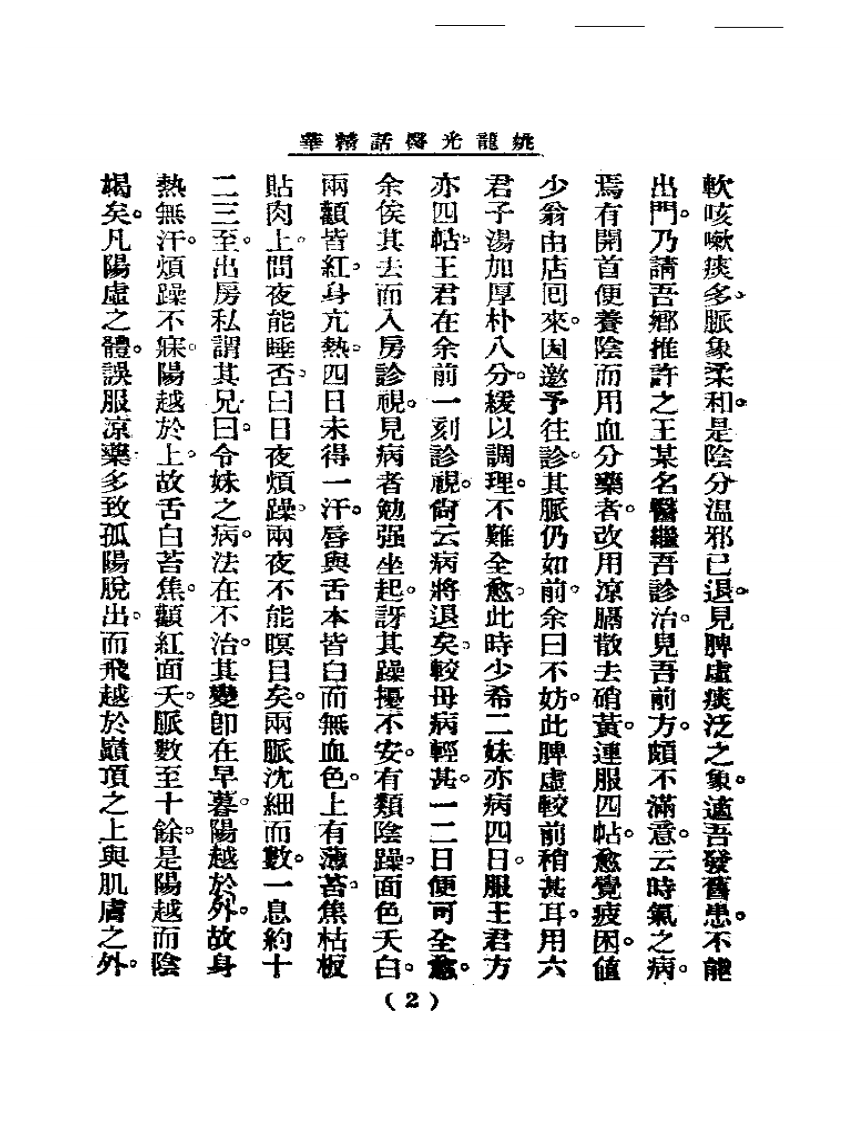 姚龍光醫話精華
軟咳嗽痰多、脈象柔和。是陰分温邪已退。見脾虛痰泛之象。適吾發舊患。不能
出門。乃請吾鄉推許之王某名醫繼吾診治。見吾前方。頗不滿意。云時氣之病。
焉有開首便養陰而用血分藥者。改用凉膈散去硝黃。連服四帖。愈覺疲困。值
少翁由店囘來。因邀予往診。其脈仍如前。余曰不妨。此脾虛較前稍甚耳。用六
君子湯加厚朴八分。緩以調理。不難全愈。此時少希二妹亦病四日。服王君方
亦四帖。王君在余前一刻診視。尙云病將退矣。較毋病輕甚。一二日便可全愈。
余俟其去而入房診視。見病者勉强坐起。訝其躁擾不安。有類陰躁。面色夭白。
兩顴皆紅。身亢熱。四日未得一汗。唇與舌本皆白而無血色。上有薄苔。焦枯板
貼肉上。問夜能睡否。曰日夜煩躁。兩夜不能瞑目矣。兩脈沈細而數。一息約十
二三至。出房私謂其兄曰。令妹之病。法在不治。其變卽在早暮。陽越於外。故身
熱無汗。煩躁不寐。陽越於上。故舌白苔焦。顴紅面夭。脈數至十餘。是陽越而陰
竭矣。凡陽虛之體。誤服凉藥。多致孤陽脫出。而飛越於巔頂之上與肌膚之外。
(2)